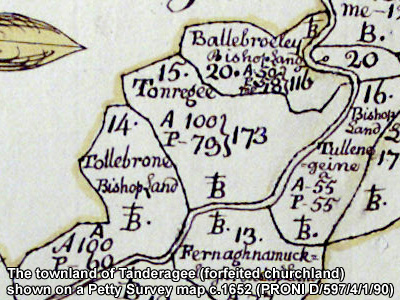 me-1
B.
Ballebroeley
Bishop Land
20.
116
20
15.
Tonregee
16.
Bishop
Land
14.
A 100
P-79
173
Tollebrone
Bishop Land
Tullene
geine
a
17
A-55
P-55
B
B
B
B
A 100
P-60
13.
Fernaghnamuck=
The townland of Tanderagee (forfeited churchland)
shown on a Petty Survey map c.1652 (PRONI D/597/4/1/90)